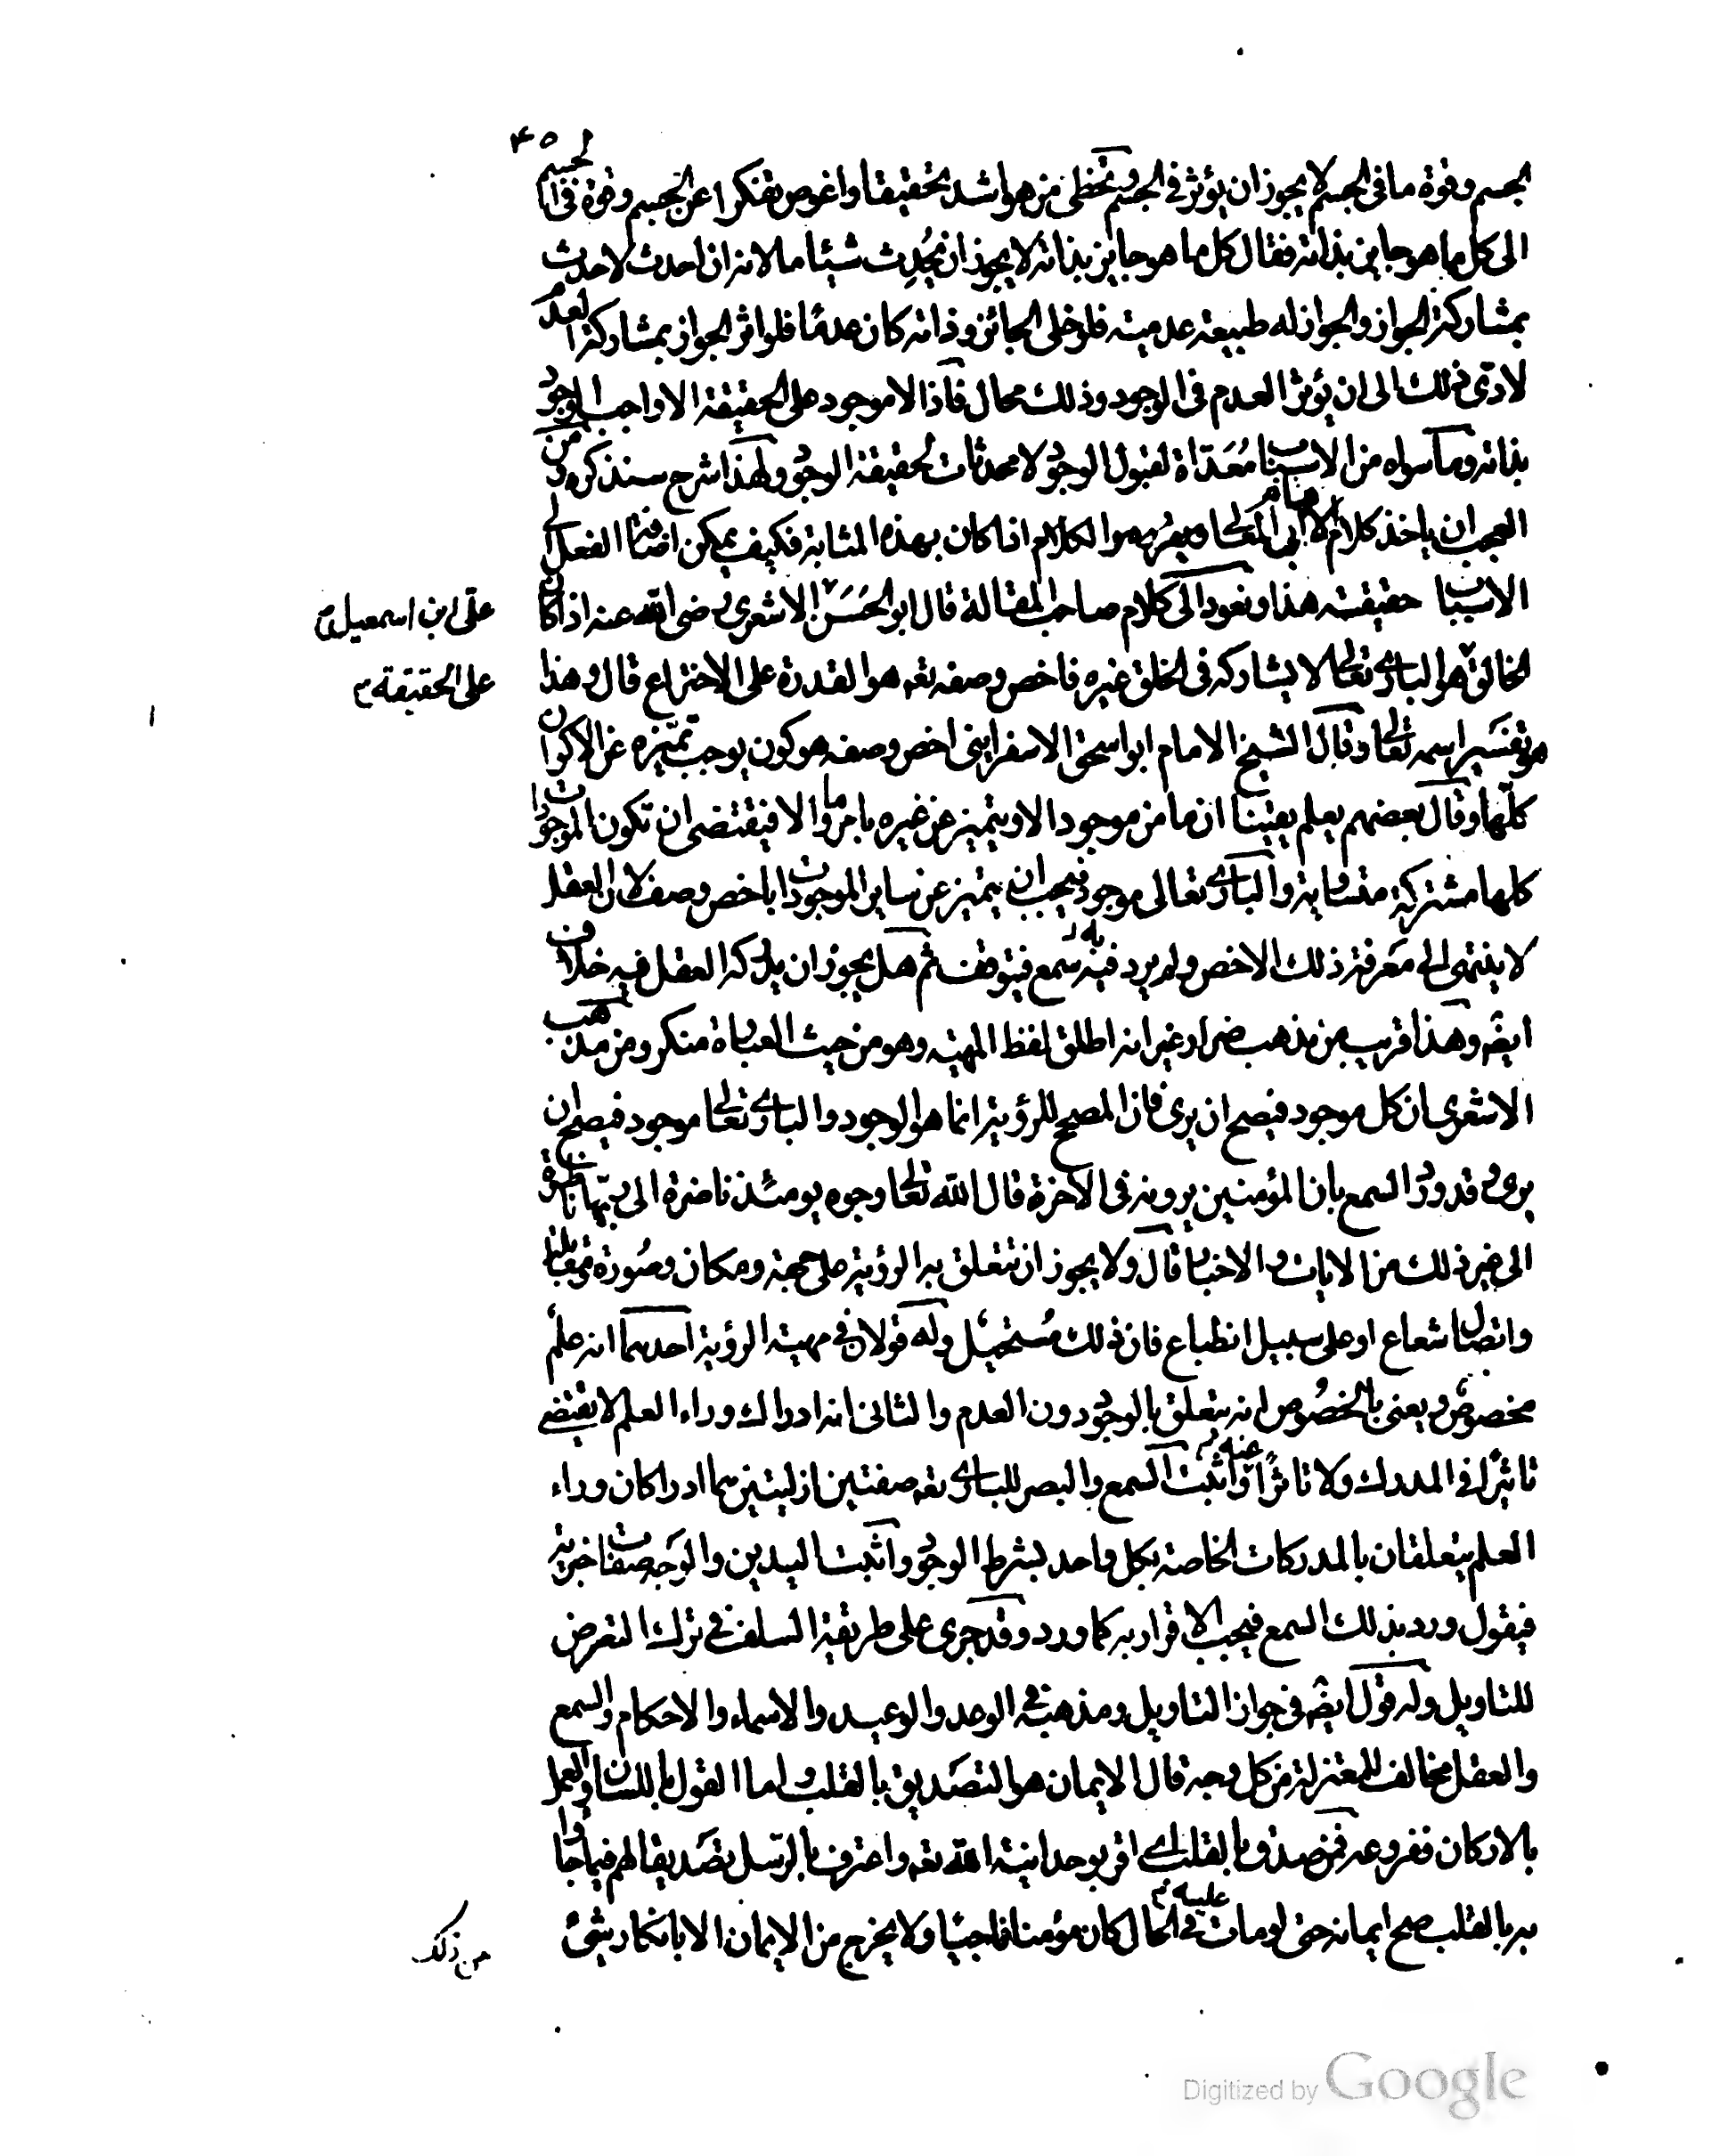 ٤٥
لجسم وقوة ما فى الجسم لا يجوز ان يؤثر فى الجسم وتخطى من هو اشد تحقيقا واغوص تفكرا عن الجسم وقوة فى الجسم
الى كل ما هو جايز بذاته فقال كل ما هو جايز بذاته لا يجوز ان يُحدِث شيئا ما لانه ان احدث لاحدث
بمشاركة الجواز والجواز له طبيعة عدمية فلو خلى الجائز وذاته كان عدمًا فلو اثر الجواز بمشاركة العدم
لادّى ذلك الى ان يؤثر العدم فى الوجود وذلك محال فاذا لا موجود على الحقيقة الا واجب الوجود
بذاته وما سواه من الاسباب مُعَدّاة لقبول الوجود لا محدثات لحقيقة الوجود ولهذا شرح سنذكره ومن
العجب ان ياخذ كلام الامام ابى المعالى ... الكلام اذا كان بهذه المثابة فكيف يمكن اضافة الفعل الى
الاسباب حقيقته هذا ونعود الى كلام صاحب المقالة قال ابو الحَسَن الاشعرى رضى الله عنه اذا كان
على ابن اسمعيل م
الخالق هو البارى تعالى لا يشاركه فى الخلق غيره فاخص وصفه تعه هو القدرة على الاختراع قال وهذا
على الحقيقة م
هو تفسَير اسمه تعالى وقال الشيخ الامام ابو اسحق الاسفراينى اخص وصفه هو كون يوجب تميّزه عن الاكوان
كلّها وقال بعضهم يعلم يقينا ان ما من موجود الا ويتميز عن غيره بامر ما والا فيقتضى ان تكون الموجودات
كلها مشتركة متساوية والبارى تعالى موجود فيجب ان يتميز عن ساير الموجودات باخص وصف الا ان العقل
لا ينتهى الى مَعرفة ذلك الاخص ولم يرد فيه به سمع فيتوقف ثم هل يجوز ان يدركه العقل فيه خلاف
ايضه وهذا قريب من مذهب ضرار غير انه اطلق لفظ المهية وهو من حيث العباراة منكر ومن مذهب
الاشعرى ان كل موجود فيصح ان يرى فان المصحح للرؤية انما هو الوجود والبارى تعالى موجود فيصح ان
يرى وقد ورد السمع بان المؤمنين يرونه فى الاخرة قال الله تعالى وجوه يومئذ ناضرة الى ربّها ناظرة
الى غير ذلك من الايات والاخبار قال ولا يجوز ان تتعلق به الرؤية على جهة ومكان وصُورة ومقابلة
واتصال شعاع او على سبيل انطباع فان ذلك مُستحيل وله قولان فى مهية الرؤية احدهما انه علم
مخصوص ويعنى بالخصُوص انه يتعلق بالوجود دون العدم والثانى انه ادراك وراء العلم لا يقتضى
تاثيرًا فى المدرك ولا تاثرًا عنه م واثبت السمع والبصر للبارى تعه صفتين ازليتين هما ادراكان وراء
العلم يتعلقان بالمدركات الخاصة بكل واحد بشرط الوجود واثبت اليدين والوَجه صفات خبرية
فيقول ورد بذلك السمع فيجب الاقرار به كما ورد وقد جرى على طريقة السلف فى ترك التعرض
للتاويل وله قول ايضه فى جواز التاويل ومذهبه فى الوعد والوعيد والاسماء والاحكام والسمع
والعقل مخالف للمعتزلة من كل وجه قال الايمان هو التصَديق بالقلب واما القول باللسان والعمل
بالاركان ففروعه فمن صدق بالقلب اى اقر بوحدانية الله تعه واعترف بالرّسل تصَديقا لهم فيما جاوا
به بالقلب صح ايمانه حتى لو مات عليه م فى الحال كان مؤمنا ناجيًا ولا يخرج من الايمان الا بانكار شىء
من ذلك
Digitized by Google